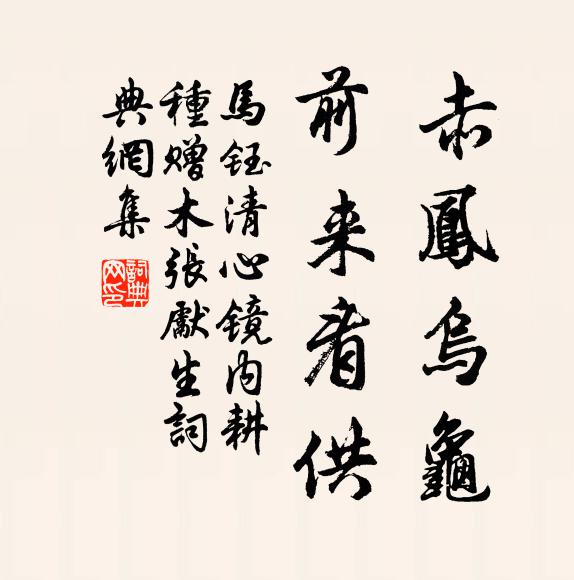 赤鳳烏龜
前来看供
馬鈺清心鏡内耕
種贈木張獻生詞
典網集
詞典網印